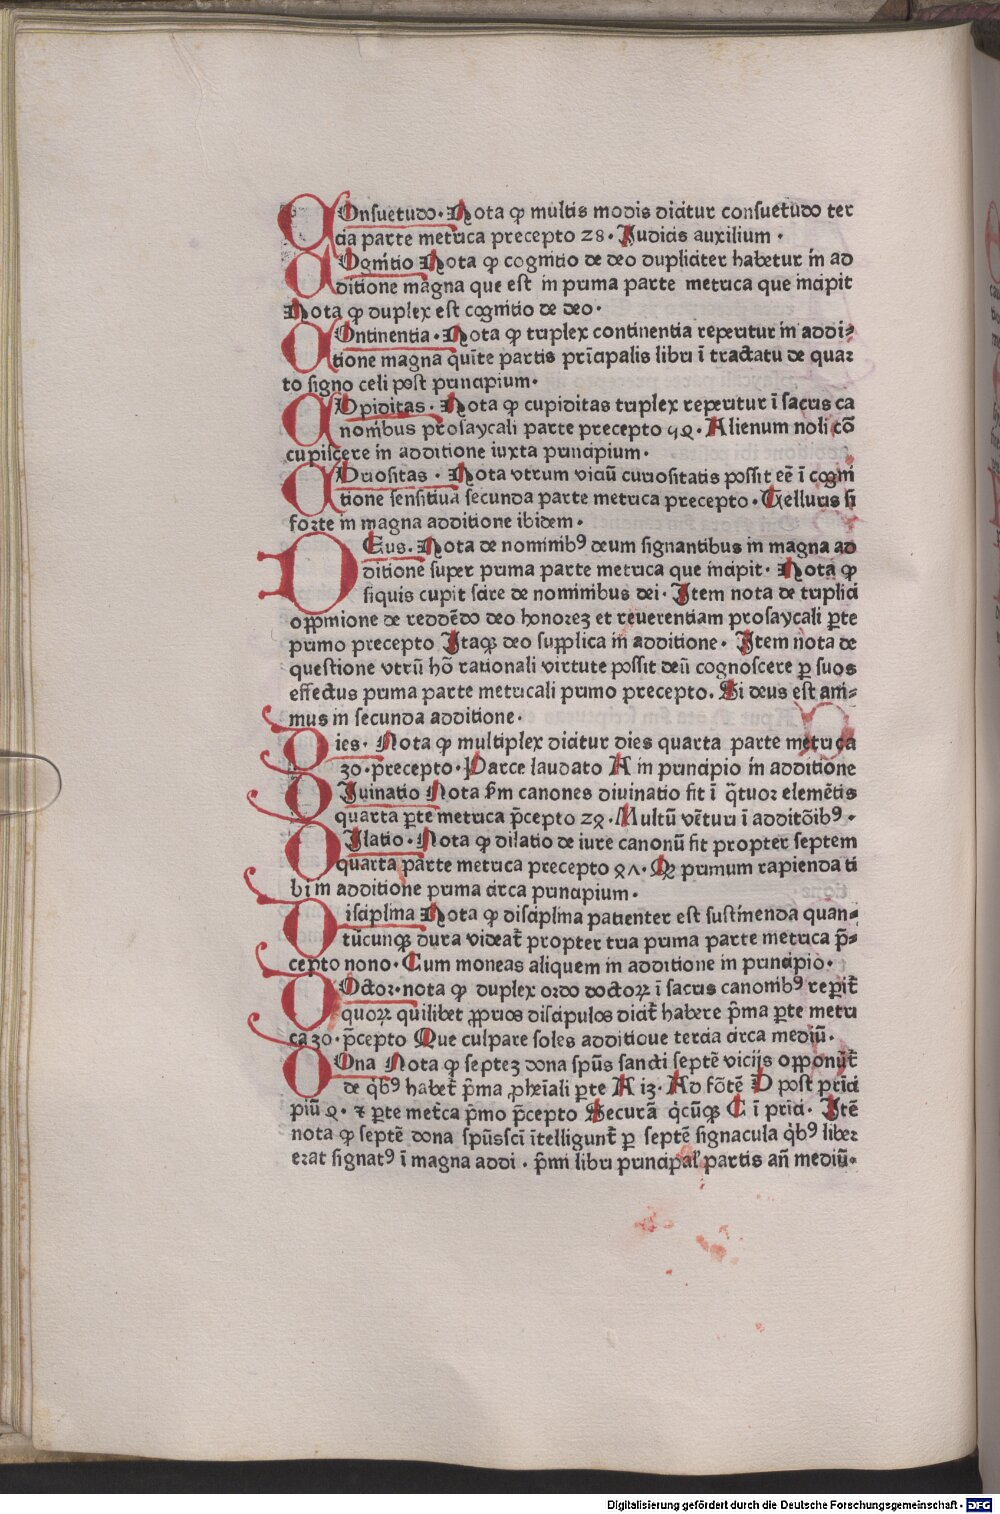 COnsuetudo. Nota ꝙ multis modis dicitur consuetudo ter
cia parte metrica precepto 28. Iudicis auxilium.
COgnitio Nota ꝙ cognitio de deo dupliciter habetur in ad
ditione magna que est in prima parte metrica que incipit
Nota ꝙ duplex est cognitio de deo.
COntinentia. Nota ꝙ triplex continentia reperitur in addi⸗
tione magna quīte partis prīcipalis libri ī tractatu de quar
to signo celi post principium.
CUpiditas. Nota ꝙ cupiditas triplex reperitur ī sacris ca
nonibus prosaycali parte precepto 49. Alienum noli cō
cupiscere in additione iuxta principium.
CUriositas. Nota vtrum viciū curiositatis possit eē ī cogni
tione sensitiua secunda parte metrica precepto. Telluris si
forte in magna additione ibidem.
DEus. Nota de nominibꝰ deum signantibus in magna ad
ditione super prima parte metrica que incipit. Nota ꝙ
siquis cupit scire de nominibus dei. Item nota de triplici
oppinione de reddēdo deo honorez et reuerentiam prosaycali ꝑte
primo precepto Itaqꝫ deo supplica in additione. Item nota de
questione vtrū hō rationali virtute possit deū cognoscere ꝑ suos
effectus prima parte metricali primo precepto. Si deus est ani⸗
mus in secunda additione.
Dies. Nota ꝙ multiplex dicitur dies quarta parte metrica
30. precepto. Parce laudato A in principio in additione
DIuinatio Nota ẜm canones diuinatio fit ī q̄tuor elemētis
quarta ꝑte metrica p̄cepto 29. Multū vēturi ī additōibꝰ.
DIlatio. Nota ꝙ dilatio de iure canonū fit propter septem
quarta parte metrica precepto 97. Qꝫ primum rapienda ti
bi in additione prima circa principium.
Disciplina Nota ꝙ disciplina patienter est sustinenda quan⸗
tūcunqꝫ dura videat̄ propter tria prima parte metrica p̄⸗
cepto nono. Cum moneas aliquem in additione in principio.
DOctor. nota ꝙ duplex ordo doctoꝝ ī sacris canonibꝰ reꝑit̄
quoꝝ quilibet ꝓprios discipulos dicit̄ habere p̄ma ꝑte metri
ca 30. p̄cepto Que culpare soles additioue tercia circa mediū.
DOna Nota ꝙ septez dona spūs sancti septē vicijs opponūt̄
de q̄bꝰ habet̄ p̄ma ꝓheīali ꝑte A 13. Ad fōtē D post prīci
piū 9. ⁊ ꝑte met̄ca p̄mo p̄cepto Securā q̄cūqꝫ C ī prīci. Itē
nota ꝙ septē dona spūssctī ītelligunt̄ ꝑ septē signacula q̄bꝰ liber
erat signatꝰ ī magna addi. p̄mi libri principal̄ partis an̄ mediū.
Digitalisierung gefördert durch die Deutsche Forschungsgemeinschaft - DFG